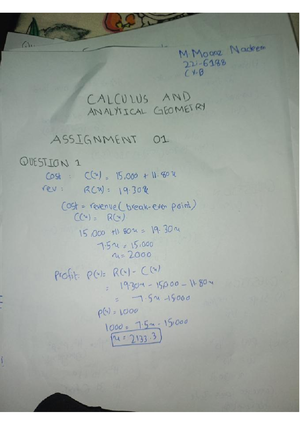 M. Moaaz Nadeem
22L-6188
CX-B
CALCULUS AND
ANALYTICAL GEOMETRY
ASSIGNMENT 01
QUESTION 1
cost = C(x) = 15,000 + 11.80x
rev: R(x) = 19.30x
Cost = revenue (break-even point)
C(x) = R(x)
15,000 + 11.80x = 19.30x
7.5x = 15,000
x = 2000
Profit: P(x) = R(x) - C(x)
= 19.30x - 15,000 - 11.80x
= 7.5x - 15000
P(x) = 1000
1000 = 7.5x - 15,000
x = 2133.3